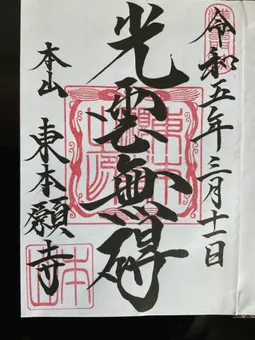 令和五年三月十一日
光雲無碍
本山
東本願寺